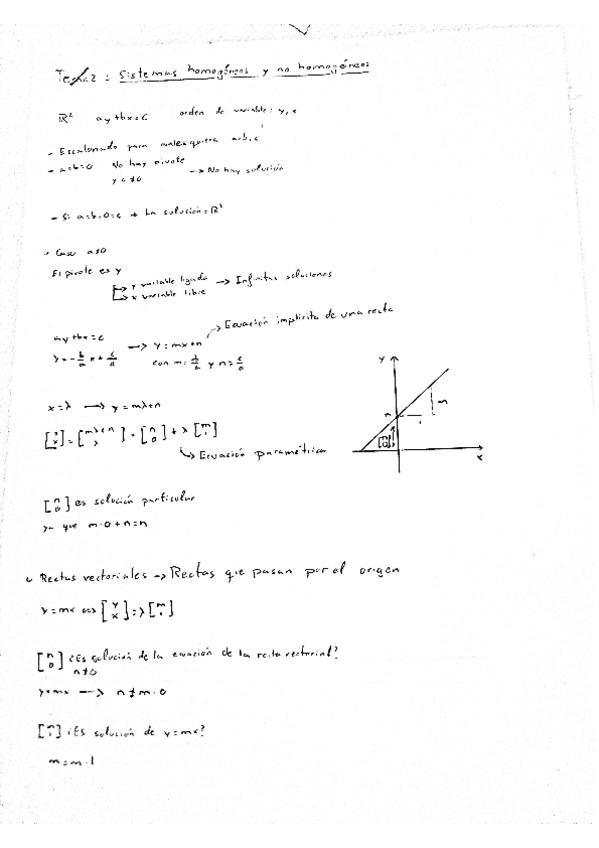 Tema 2 : Sistemas homogéneos y no homogéneos
ℝ² ay+bx=c orden de variable: y, x
- Escalonado para cualesquiera a,b,c
- a=b=0 No hay pivote
y c≠0 → No hay solución
- Si a=b=0=c → La solución=ℝ²
• Caso a≠0
El pivote es y
→ y variable ligada → Infinitas soluciones
→ x variable libre
→ Ecuación implícita de una recta
ay+bx=c
y=-b/a x + c/a → y=mx+n
con m= b/a y n= c/a
x=λ → y=mλ+n
[y x]=[mλ+n λ]=[n 0]+λ[m 1]
→ Ecuación paramétrica
y
n
m
1
[n 0]
x
[n 0] es solución particular
ya que m·0+n=n
• Rectas vectoriales → Rectas que pasan por el origen
y=mx ⇔ [y x]=λ[m 1]
[n 0] ¿Es solución de la ecuación de la recta vectorial?
n≠0
y=mx → n≠m·0
[m 1] ¿Es solución de y=mx?
m=m·1